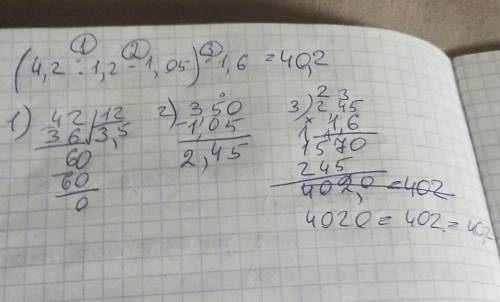 ① ② ③
(4,2 : 1,2 - 1,05) · 1,6 = 40,2
1) 42 | 12
36 | 3,5
60
60
0
2) 350
-1,05
2,45
3) 2 3
245
× 1,6
1570
245
4020 = 402
4020 = 402 = 40,2